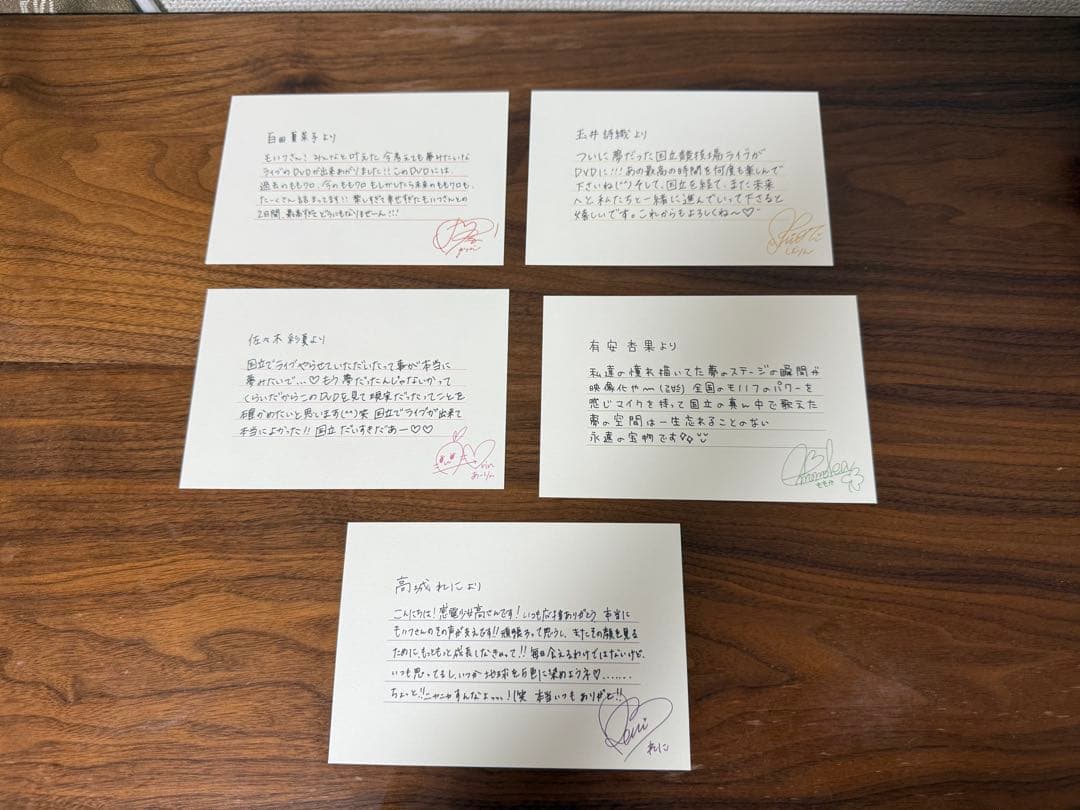 百田夏菜子より
もノフさん!みんなと叶えた今考えても夢みたいな
ライブのDVDが出来あがりました!!このDVDには
過去のももクロ、今のももクロもしかしたら未来のももクロも、
たくさん詰まってます!!楽しすぎて幸せすぎたもノフさんとの
2日間、最高すぎてどうにもなりませーん!!!
玉井詩織より
ついに夢だった国立競技場ライブが
DVDに!!!あの最高の時間を何度も楽しんで
下さいね(^^)そして、国立を経て、また未来
へと私たちと一緒に進んでいって下さると
嬉しいです。これからもよろしくね〜♡
しおりん
佐々木彩夏より
国立でライブやらせていただいたって事が本当に
夢みたいで...♡もう夢だったんじゃないかって
くらいだからこのDVDを見て現実だったってことを
確かめたいと思います(^^)笑 国立でライブが出来て
本当によかった!!国立だいすきだあー♡♡
あーりん
有安杏果より
私達の憧れ描いてた夢のステージの瞬間が
映像化や〜 全国のモノフのパワーを
感じマイクを持って国立の真ん中で歌えた
夢の空間は一生忘れることのない
永遠の宝物です
momoka
ももか
高城れにより
こんにちは!感電少女高さんです!いつも応援ありがとう 本当に
モノフさんのその声が支えです!!頑張ろって思うし、またその顔を見る
ために、もっともっと成長しなきゃって!!毎日会えるわけではないけど、
いつも思ってるし、いつか地球を5色に染めようネ♡.......
ちょっと!!ニヤニヤすんなよ...!(笑 本当いつもありがと!!
Reni
れに